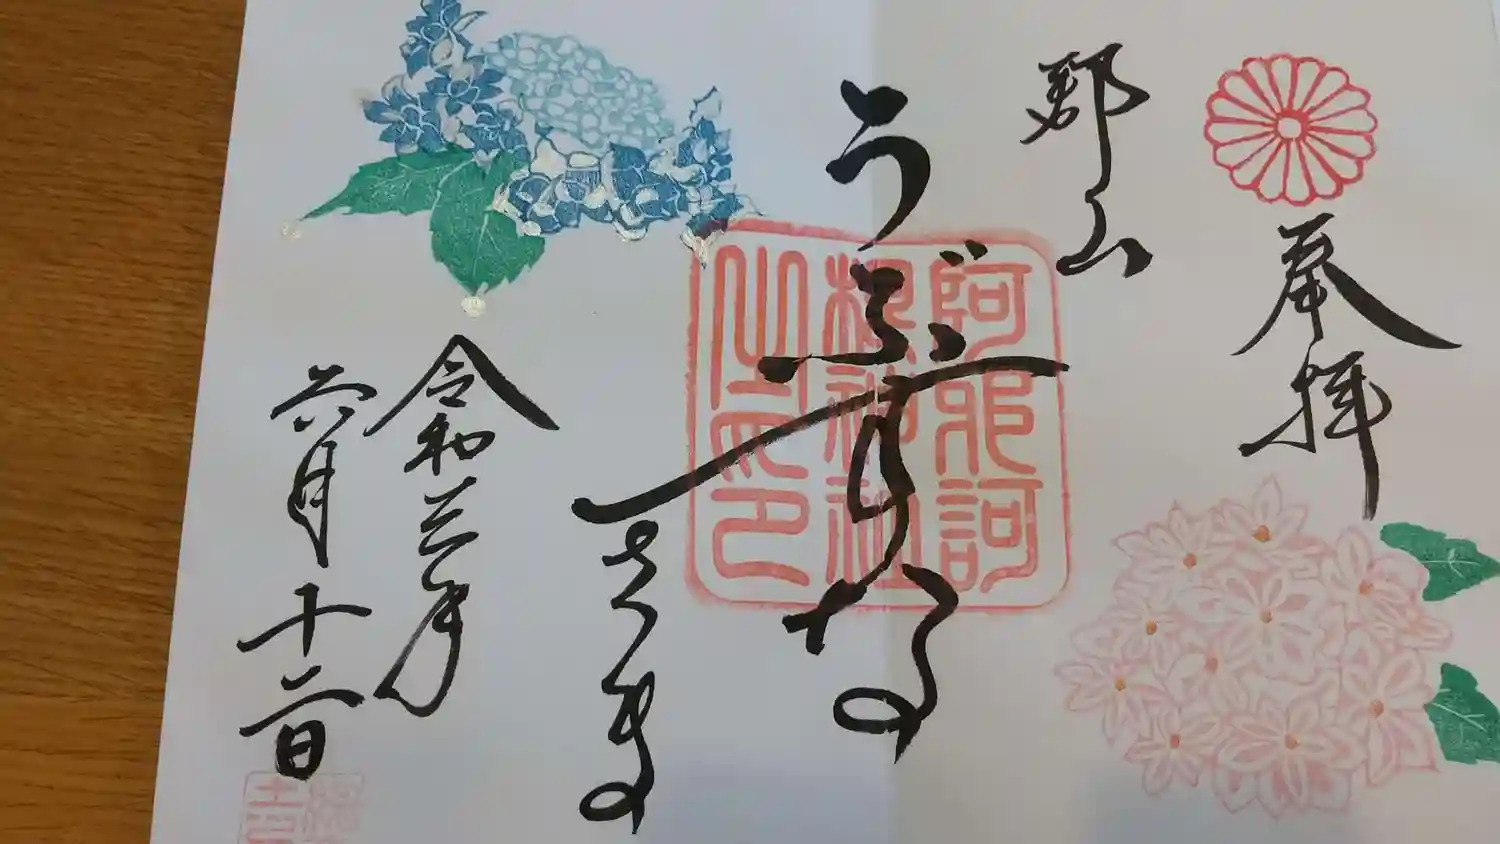 奉拝
郡山
うぶすな
さま
阿邪訶
根神社
之印
令和三年
六月十二日